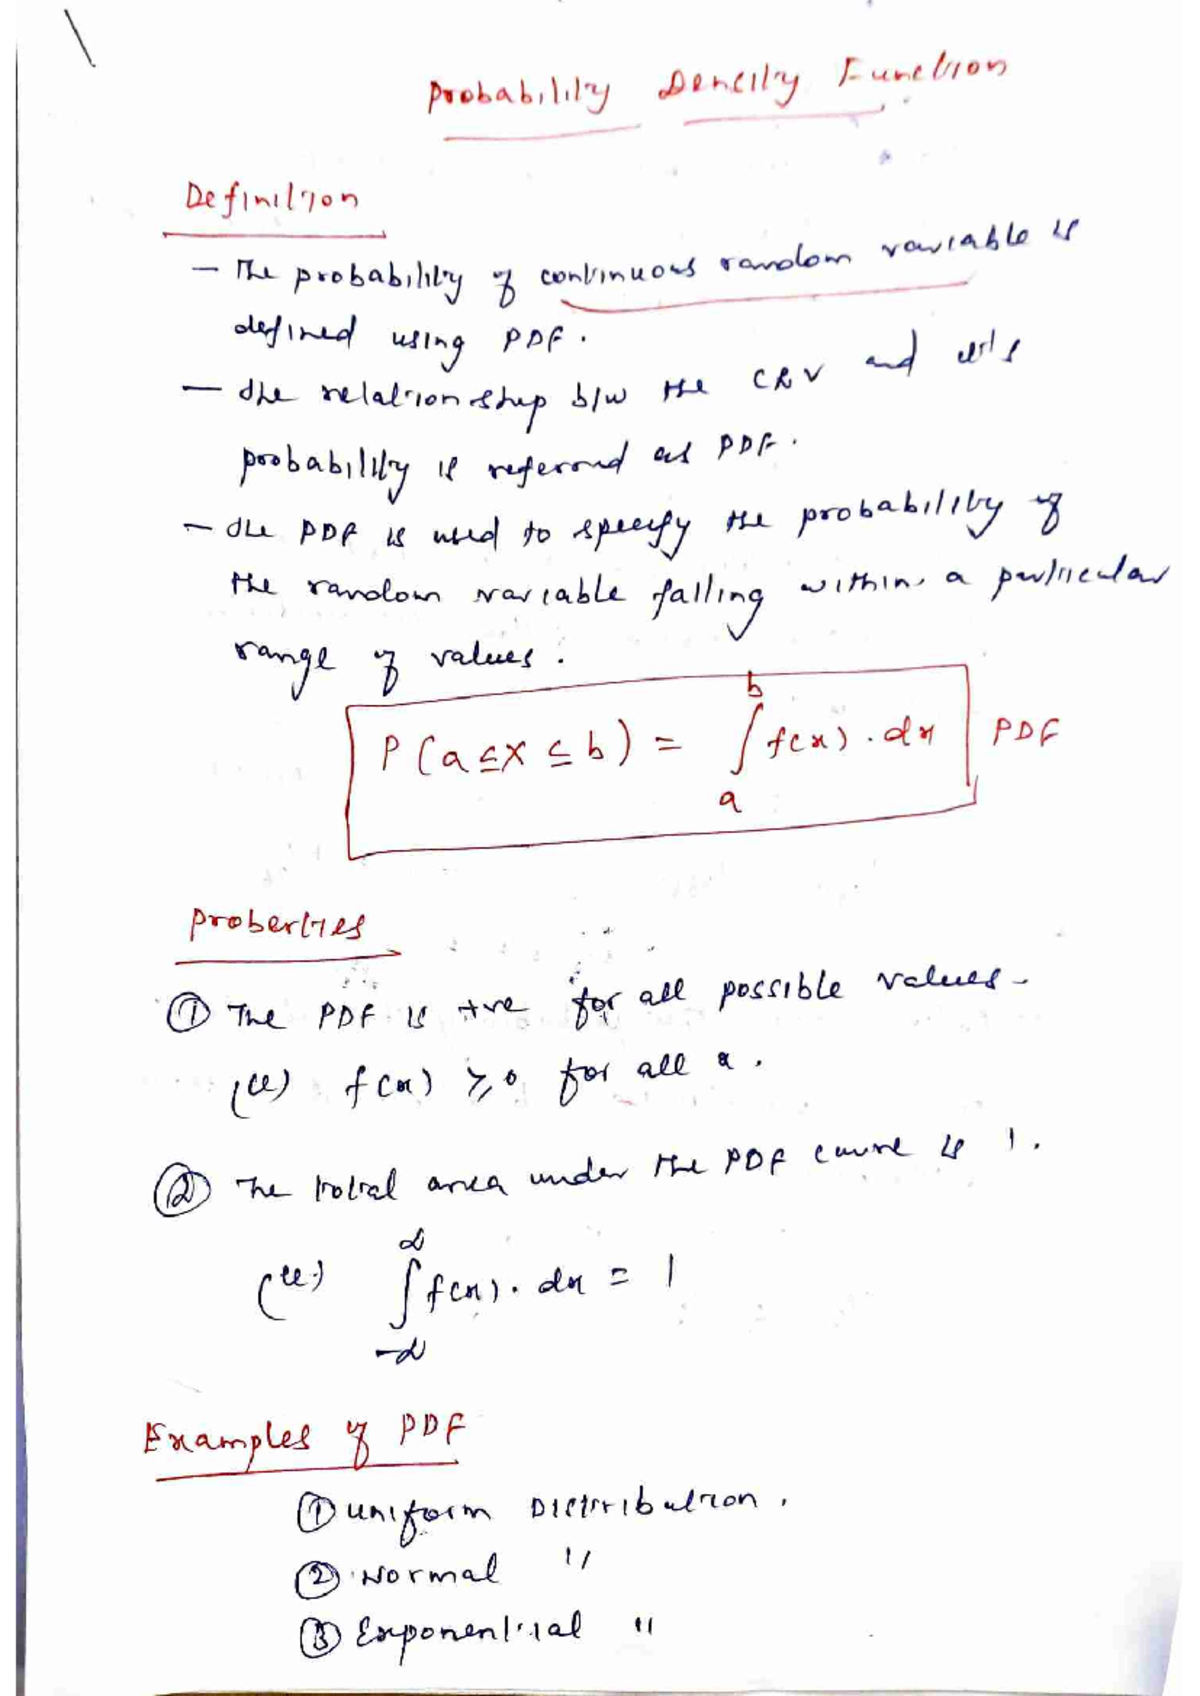 Probability Density Function
Definition
— The probability of continuous random variable is
defined using PDF.
— The relationship b/w the CRV and it's
probability is referred as PDF.
— The PDF is used to specify the probability of
the random variable falling within a particular
range of values.
P(a≤X≤b) = ∫ₐᵇ f(x).dx PDF
Properties
① The PDF is +ve for all possible values.
(ie) f(x) ≥ 0 for all x.
② The total area under the PDF curve is 1.
(ie.) ∫_{-∞}^{∞} f(x).dx = 1
Examples of PDF
① Uniform Distribution.
② Normal "
③ Exponential "